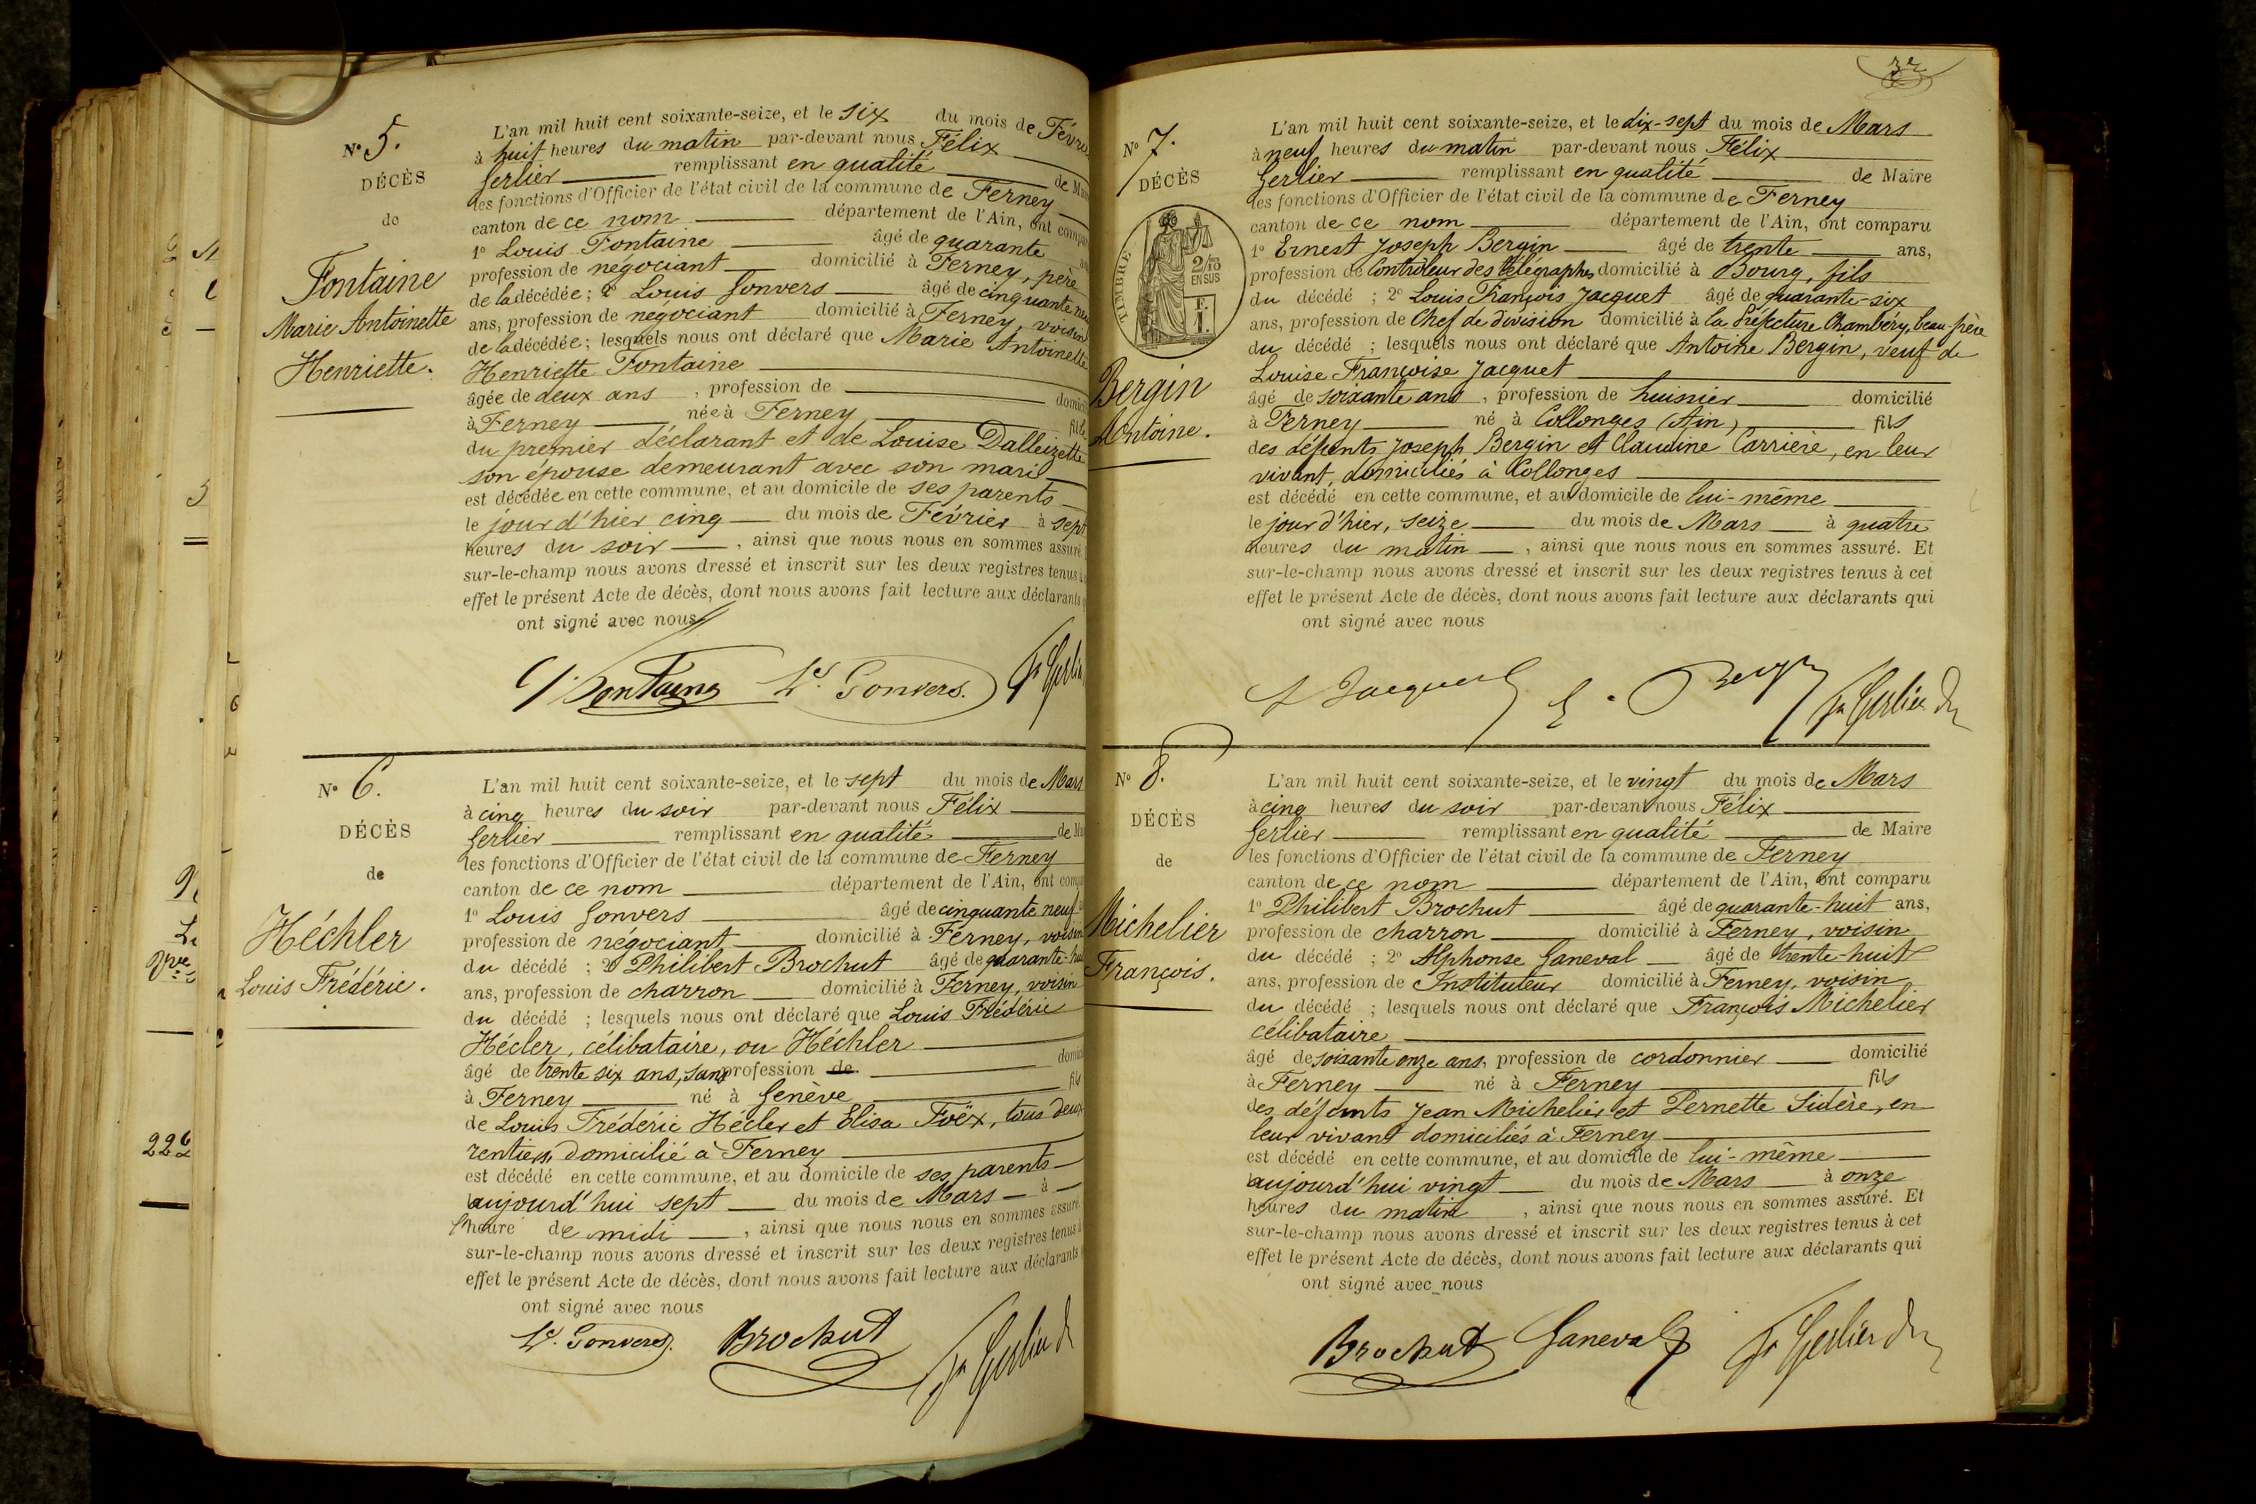 N° 5.
DÉCÈS
de
Fontaine
Marie Antoinette
Henriette.
L'an mil huit cent soixante-seize, et le six du mois de Février
à huit heures du matin par-devant nous Félix
Gerlier remplissant en qualité de Maire
les fonctions d'Officier de l'état civil de la commune de Ferney
canton de ce nom département de l'Ain, ont comparu
1° Louis Fontaine âgé de quarante
profession de négociant domicilié à Ferney, père
de la décédée ; 2° Louis Gonvers âgé de cinquante neuf
ans, profession de négociant domicilié à Ferney, voisin
de la décédée ; lesquels nous ont déclaré que Marie Antoinette
Henriette Fontaine
âgée de deux ans , profession de domicilié
à Ferney née à Ferney fille
du premier déclarant et de Louise Dalleizette
son épouse demeurant avec son mari
est décédée en cette commune, et au domicile de ses parents
le jour d'hier cinq du mois de Février à sept
heures du soir , ainsi que nous nous en sommes assuré.
sur-le-champ nous avons dressé et inscrit sur les deux registres tenus à
effet le présent Acte de décès, dont nous avons fait lecture aux déclarants
ont signé avec nous
L. Fontaine Ls. Gonvers. Fx Gerlier
N° 6.
DÉCÈS
de
Héchler
Louis Frédéric.
L'an mil huit cent soixante-seize, et le sept du mois de Mars
à cinq heures du soir par-devant nous Félix
Gerlier remplissant en qualité de Maire
les fonctions d'Officier de l'état civil de la commune de Ferney
canton de ce nom département de l'Ain, ont comparu
1° Louis Gonvers âgé de cinquante neuf
profession de négociant domicilié à Ferney, voisin
du décédé ; 2° Philibert Brochut âgé de quarante-huit
ans, profession de charron domicilié à Ferney, voisin
du décédé ; lesquels nous ont déclaré que Louis Frédéric
Hécler, célibataire, ou Héchler
âgé de trente six ans, sans profession de domicilié
à Ferney né à Genève fils
de Louis Frédéric Hécler et Elisa Foëx, tous deux
rentiers, domicilié à Ferney
est décédé en cette commune, et au domicile de ses parents
aujourd'hui sept du mois de Mars à
l'heure de midi , ainsi que nous nous en sommes assuré.
sur-le-champ nous avons dressé et inscrit sur les deux registres tenus à
effet le présent Acte de décès, dont nous avons fait lecture aux déclarants
ont signé avec nous
Ls. Gonvers. Brochut Fx Gerlier
32
N° 7.
DÉCÈS
TIMBRE
2/10
EN SUS
F.
1.
Bergin
Antoine.
L'an mil huit cent soixante-seize, et le dix-sept du mois de Mars
à neuf heures du matin par-devant nous Félix
Gerlier remplissant en qualité de Maire
les fonctions d'Officier de l'état civil de la commune de Ferney
canton de ce nom département de l'Ain, ont comparu
1° Ernest Joseph Bergin âgé de trente ans,
profession de Contrôleur des télégraphes domicilié à Bourg, fils
du décédé ; 2° Louis François Jacquet âgé de quarante-six
ans, profession de Chef de division domicilié à la Préfecture Chambéry, beau-frère
du décédé ; lesquels nous ont déclaré que Antoine Bergin, veuf de
Louise Françoise Jacquet
âgé de soixante ans , profession de huissier domicilié
à Ferney né à Collonges (Ain) fils
des défunts Joseph Bergin et Claudine Carrière, en leur
vivant, domiciliés à Collonges
est décédé en cette commune, et au domicile de lui-même
le jour d'hier, seize du mois de Mars à quatre
heures du matin , ainsi que nous nous en sommes assuré. Et
sur-le-champ nous avons dressé et inscrit sur les deux registres tenus à cet
effet le présent Acte de décès, dont nous avons fait lecture aux déclarants qui
ont signé avec nous
L Jacquet E. Bergin Fx Gerlier
N° 8.
DÉCÈS
de
Michelier
François.
L'an mil huit cent soixante-seize, et le vingt du mois de Mars
à cinq heures du soir par-devant nous Félix
Gerlier remplissant en qualité de Maire
les fonctions d'Officier de l'état civil de la commune de Ferney
canton de ce nom département de l'Ain, ont comparu
1° Philibert Brochut âgé de quarante-huit ans,
profession de charron domicilié à Ferney, voisin
du décédé ; 2° Alphonse Ganeval âgé de trente-huit
ans, profession de Instituteur domicilié à Ferney, voisin
du décédé ; lesquels nous ont déclaré que François Michelier
célibataire
âgé de soixante onze ans, profession de cordonnier domicilié
à Ferney né à Ferney fils
des défunts Jean Michelier et Pernette Sidère, en
leur vivant domiciliés à Ferney
est décédé en cette commune, et au domicile de lui-même
aujourd'hui vingt du mois de Mars à onze
heures du matin , ainsi que nous nous en sommes assuré. Et
sur-le-champ nous avons dressé et inscrit sur les deux registres tenus à cet
effet le présent Acte de décès, dont nous avons fait lecture aux déclarants qui
ont signé avec nous
Brochut Ganeval Fx Gerlier